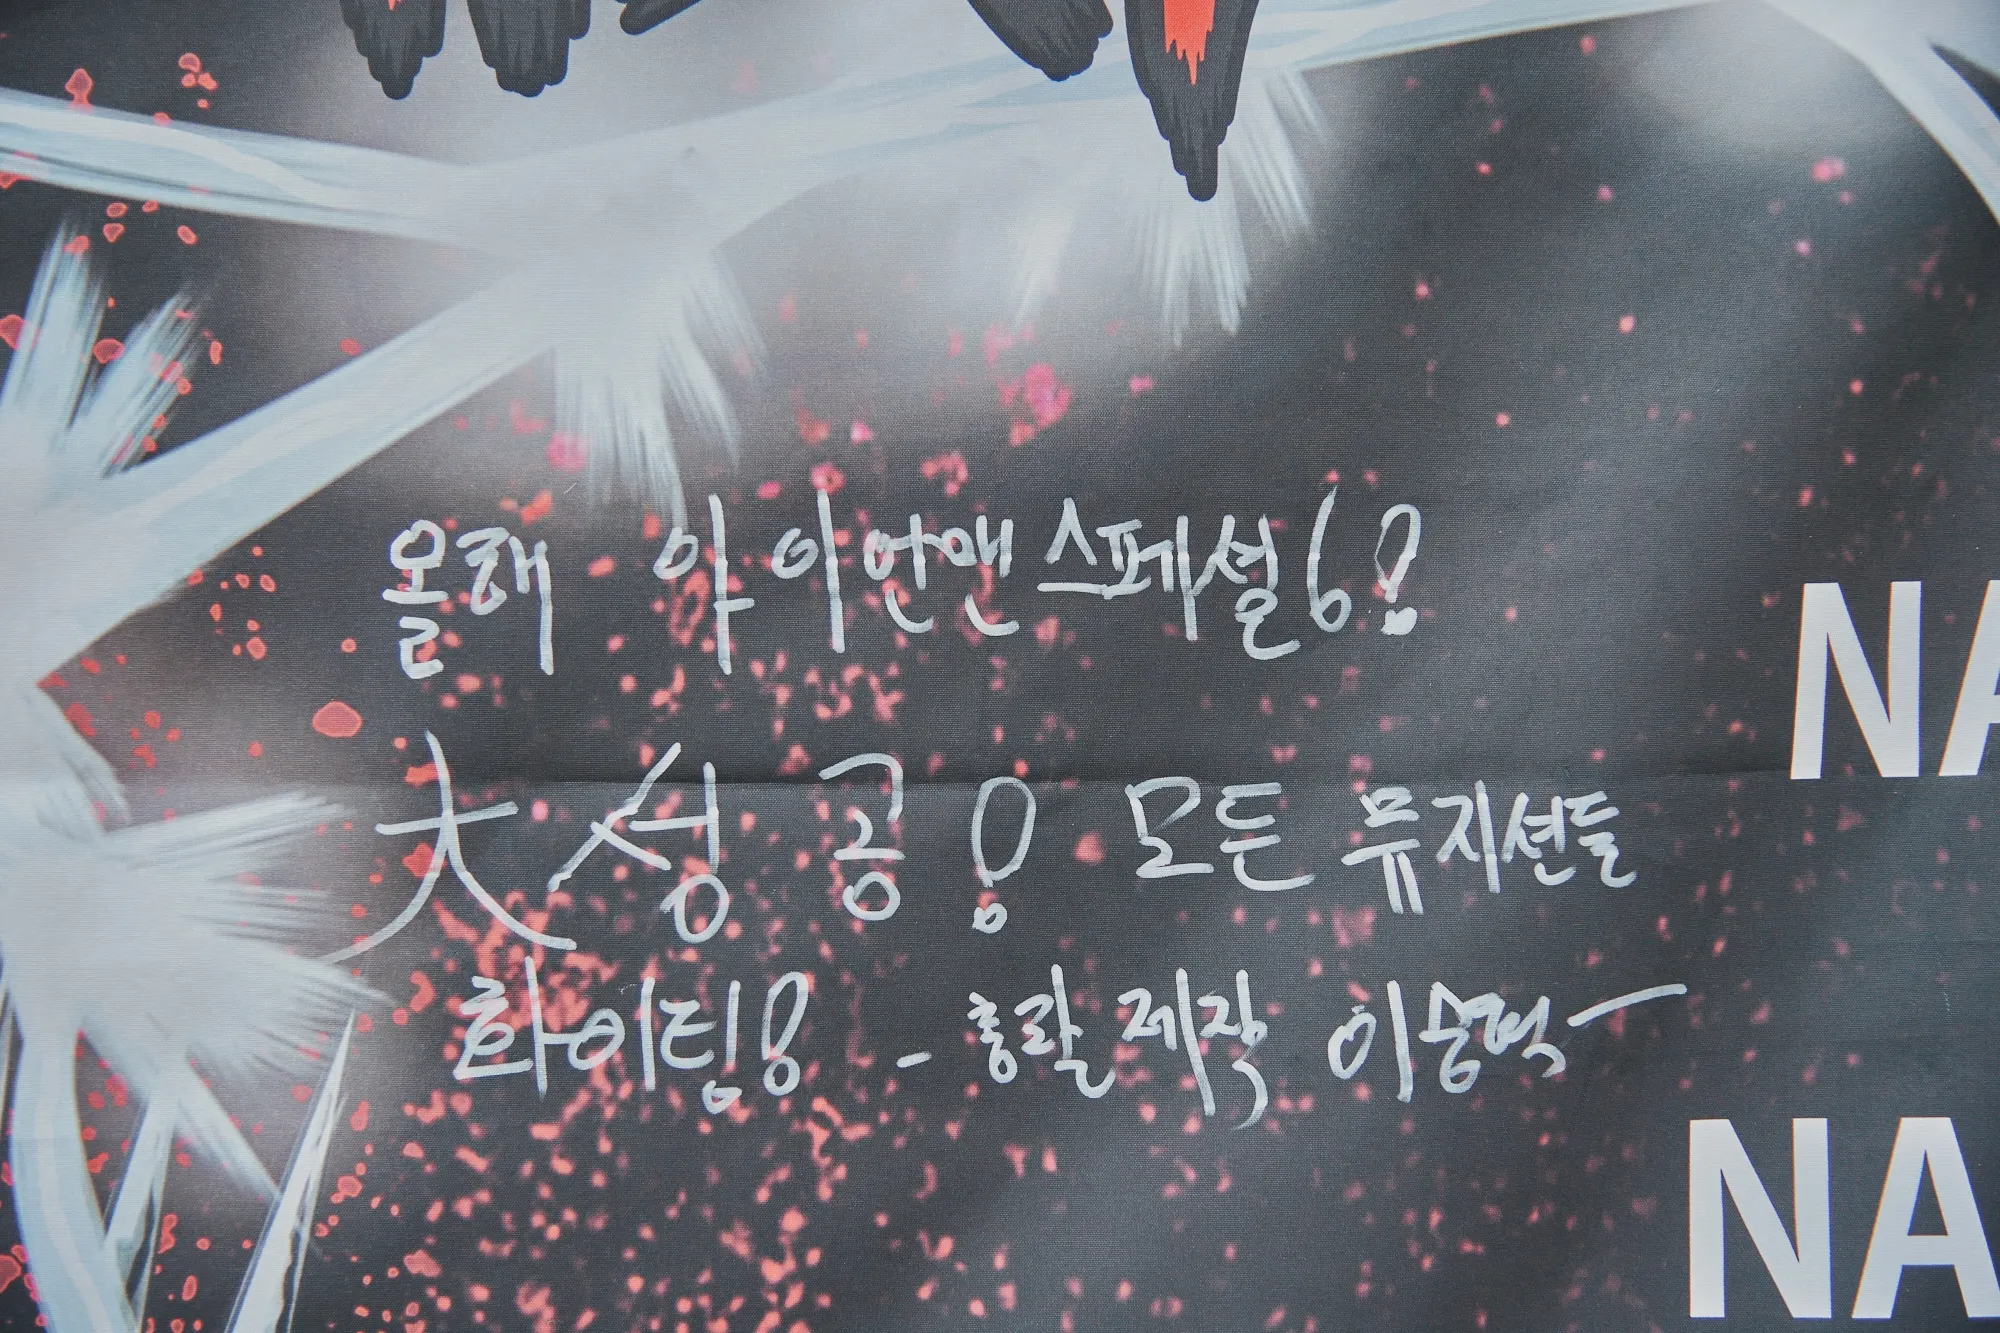 올해 아이언맨스페셜6!
大성공! 모든 뮤지션들
화이팅! - 총괄 제작 이승혁
NA
NA